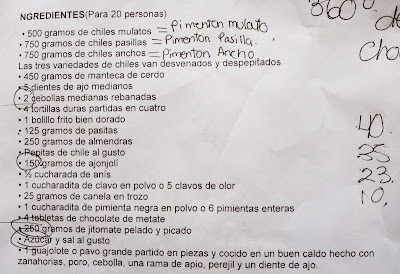 360 de
NGREDIENTES(Para 20 personas)
• 500 gramos de chiles mulatos = Pimenton mulato
• 750 gramos de chiles pasillas = Pimenton Pasilla.
• 750 gramos de chiles anchos = Pimenton Ancho
Cho
Las tres variedades de chiles van desvenados y despepitados
• 450 gramos de manteca de cerdo
• 5 dientes de ajo medianos
• 2 cebollas medianas rebanadas
• 4 tortillas duras partidas en cuatro
• 1 bolillo frito bien dorado
40.
• 125 gramos de pasitas
• 250 gramos de almendras
35
• Pepitas de chile al gusto
• 150 gramos de ajonjolí
23.
• ½ cucharada de anís
• 1 cucharadita de clavo en polvo o 5 clavos de olor
10,
• 25 gramos de canela en trozo
• 1 cucharadita de pimienta negra en polvo o 6 pimientas enteras
• 4 tabletas de chocolate de metate
• 250 gramos de jitomate pelado y picado
• Azúcar y sal al gusto
• 1 guajolote o pavo grande partido en piezas y cocido en un buen caldo hecho con
zanahorias, poro, cebolla, una rama de apio, perejil y un diente de ajo.